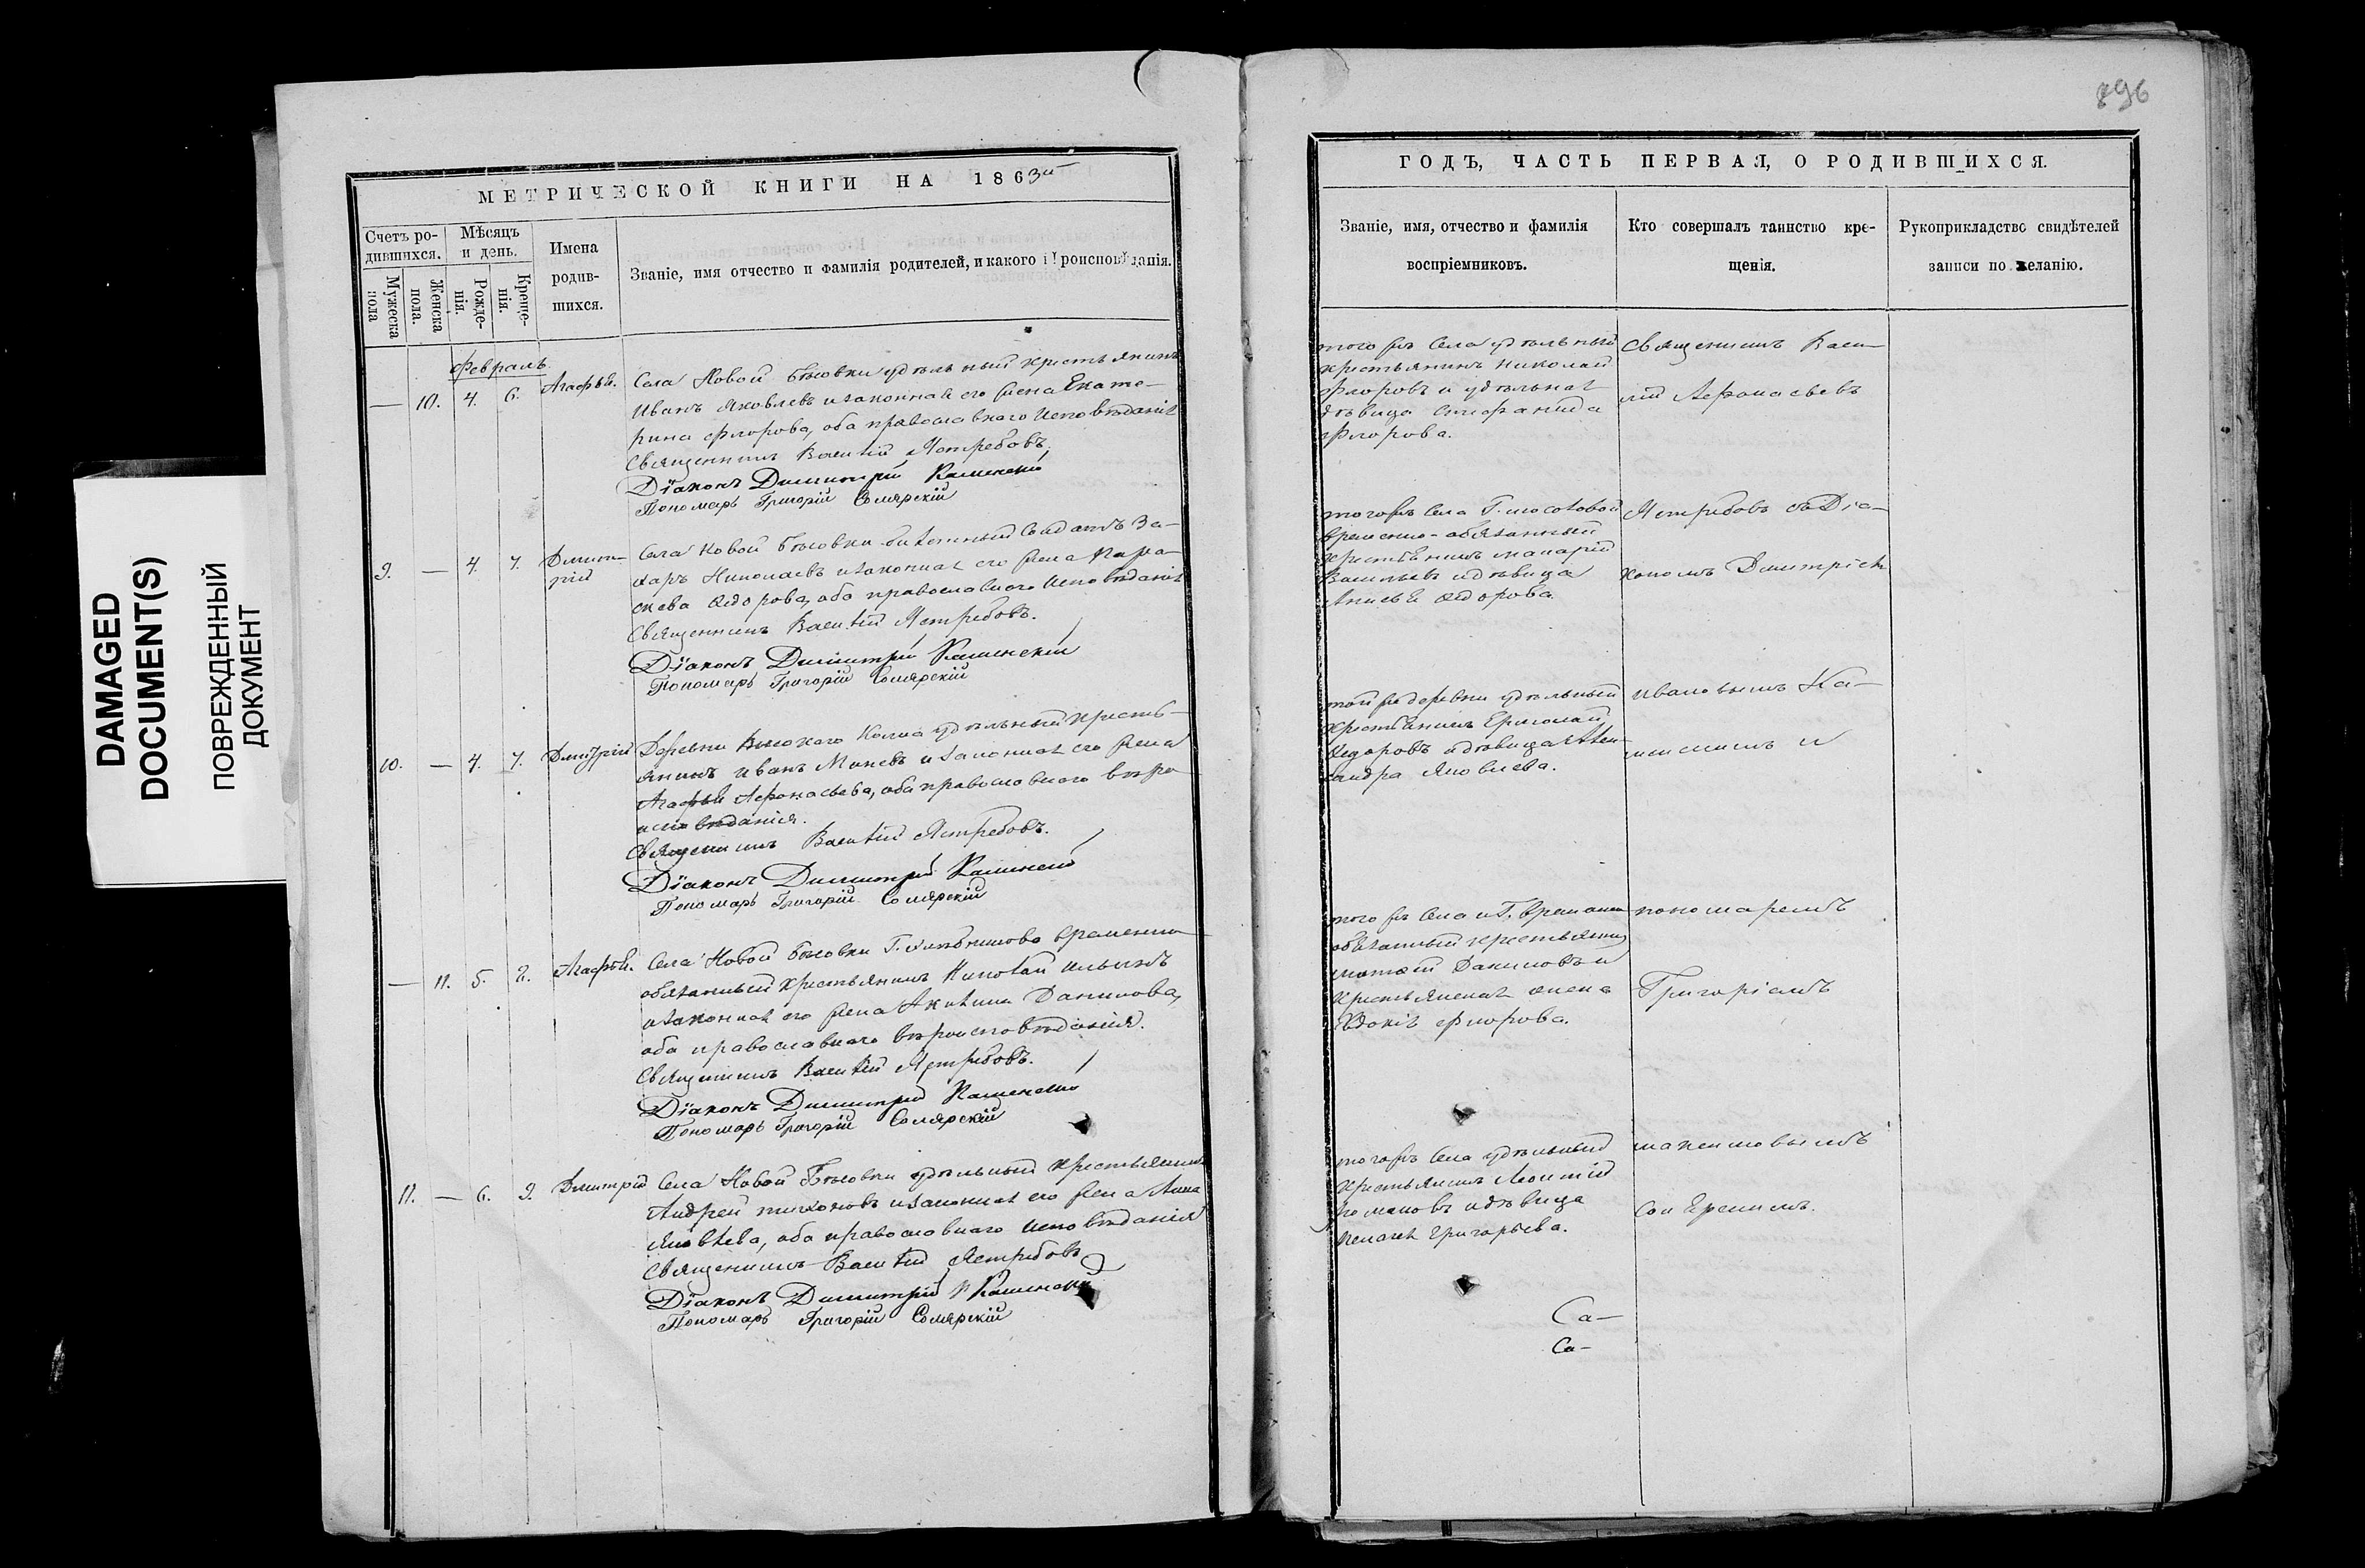 DAMAGED
DOCUMENT(S)
ПОВРЕЖДЕННЫЙ
ДОКУМЕНТ
МЕТРИЧЕСКОЙ КНИГИ НА 1863й
Счетъ ро-
дившихся.
Мѣсяцъ
и день.
Имена
родив-
шихся.
Званіе, имя отчество и фамилія родителей, и какого вѣроисповѣданія.
Мужеска
пола
Женска
пола.
Рожде-
нія.
Креще-
нія.
Февраль
— 10. 4. 6. Агафья. Села Новой Бѣсовки удѣльный крестьянинъ
Иванъ Яковлевъ и законная его жена Екате-
рина Флорова, оба православного исповѣданія
Священникъ Василій Ястребовъ.
Діаконъ Димитрій Каменскій
Пономарь Григорій Солярскій
9. — 4. 7. Дмит-
рій
Села Новой Бѣсовки билетный солдатъ За-
харъ Николаевъ и законная его жена Пара-
скева Ѳедорова, оба православного исповѣданія
Священникъ Василій Ястребовъ.
Діаконъ Димитрій Каменскій
Пономарь Григорій Солярскій
10. — 4. 7. Дмитрій Деревни Высокаго Колка удѣльный кресть-
янинъ Иванъ Минеевъ и законная его жена
Агафья Афонасьева, оба православного вѣро
исповѣданія.
Священникъ Василій Ястребовъ.
Діаконъ Димитрій Каменскій
Пономарь Григорій Солярскій
— 11. 5. 8. Агафья. Села Новой Бѣсовки Г. временно
обязанный крестьянинъ Николай Ильинъ
и законная его жена Акилина Данилова,
оба православнаго вѣроисповѣданія.
Священникъ Василій Ястребовъ.
Діаконъ Димитрій Каменскій
Пономарь Григорій Солярскій
11. — 6. 9. Дмитрій Села Новой Бѣсовки удѣльный крестьянинъ
Андрей Тихоновъ и законная его жена Анна
Яковлева, оба православного исповѣданія
Священникъ Василій Ястребовъ
Діаконъ Димитрій Каменскій
Пономарь Григорій Солярскій
896
ГОДЪ, ЧАСТЬ ПЕРВАЯ, О РОДИВШИХСЯ.
Званіе, имя, отчество и фамилія
воспріемниковъ.
Кто совершалъ таинство кре-
щенія.
Рукоприкладство свидѣтелей
записи по желанію.
того жъ села удѣльный
крестьянинъ Николай
Флоровъ и удѣльная
дѣвица Стефанида
Флорова.
Священникъ Васи-
лій Афонасьевъ
того жъ села Г.
временно-обязанный
крестьянинъ Макарій
Васильевъ и дѣвица
Анисья Ѳедорова.
Ястребовъ съ Діа-
кономъ Дмитріем
той же деревни удѣльный
крестьянинъ Ермолай
Ѳедоровъ и дѣвица Алек-
сандра Яковлева.
Ивановымъ Ка-
менскимъ и
того жъ села и Г. временно
обязанный крестьянинъ
Матѳей Даниловъ и
крестьянская жена
Евдокія Флорова.
пономаремъ
Григоріемъ
того жъ села удѣльный
крестьянинъ Леонтій
Романовъ и дѣвица
Пелагея Григорьева.
Максимовымъ
Солярскимъ.
Са-
Са-